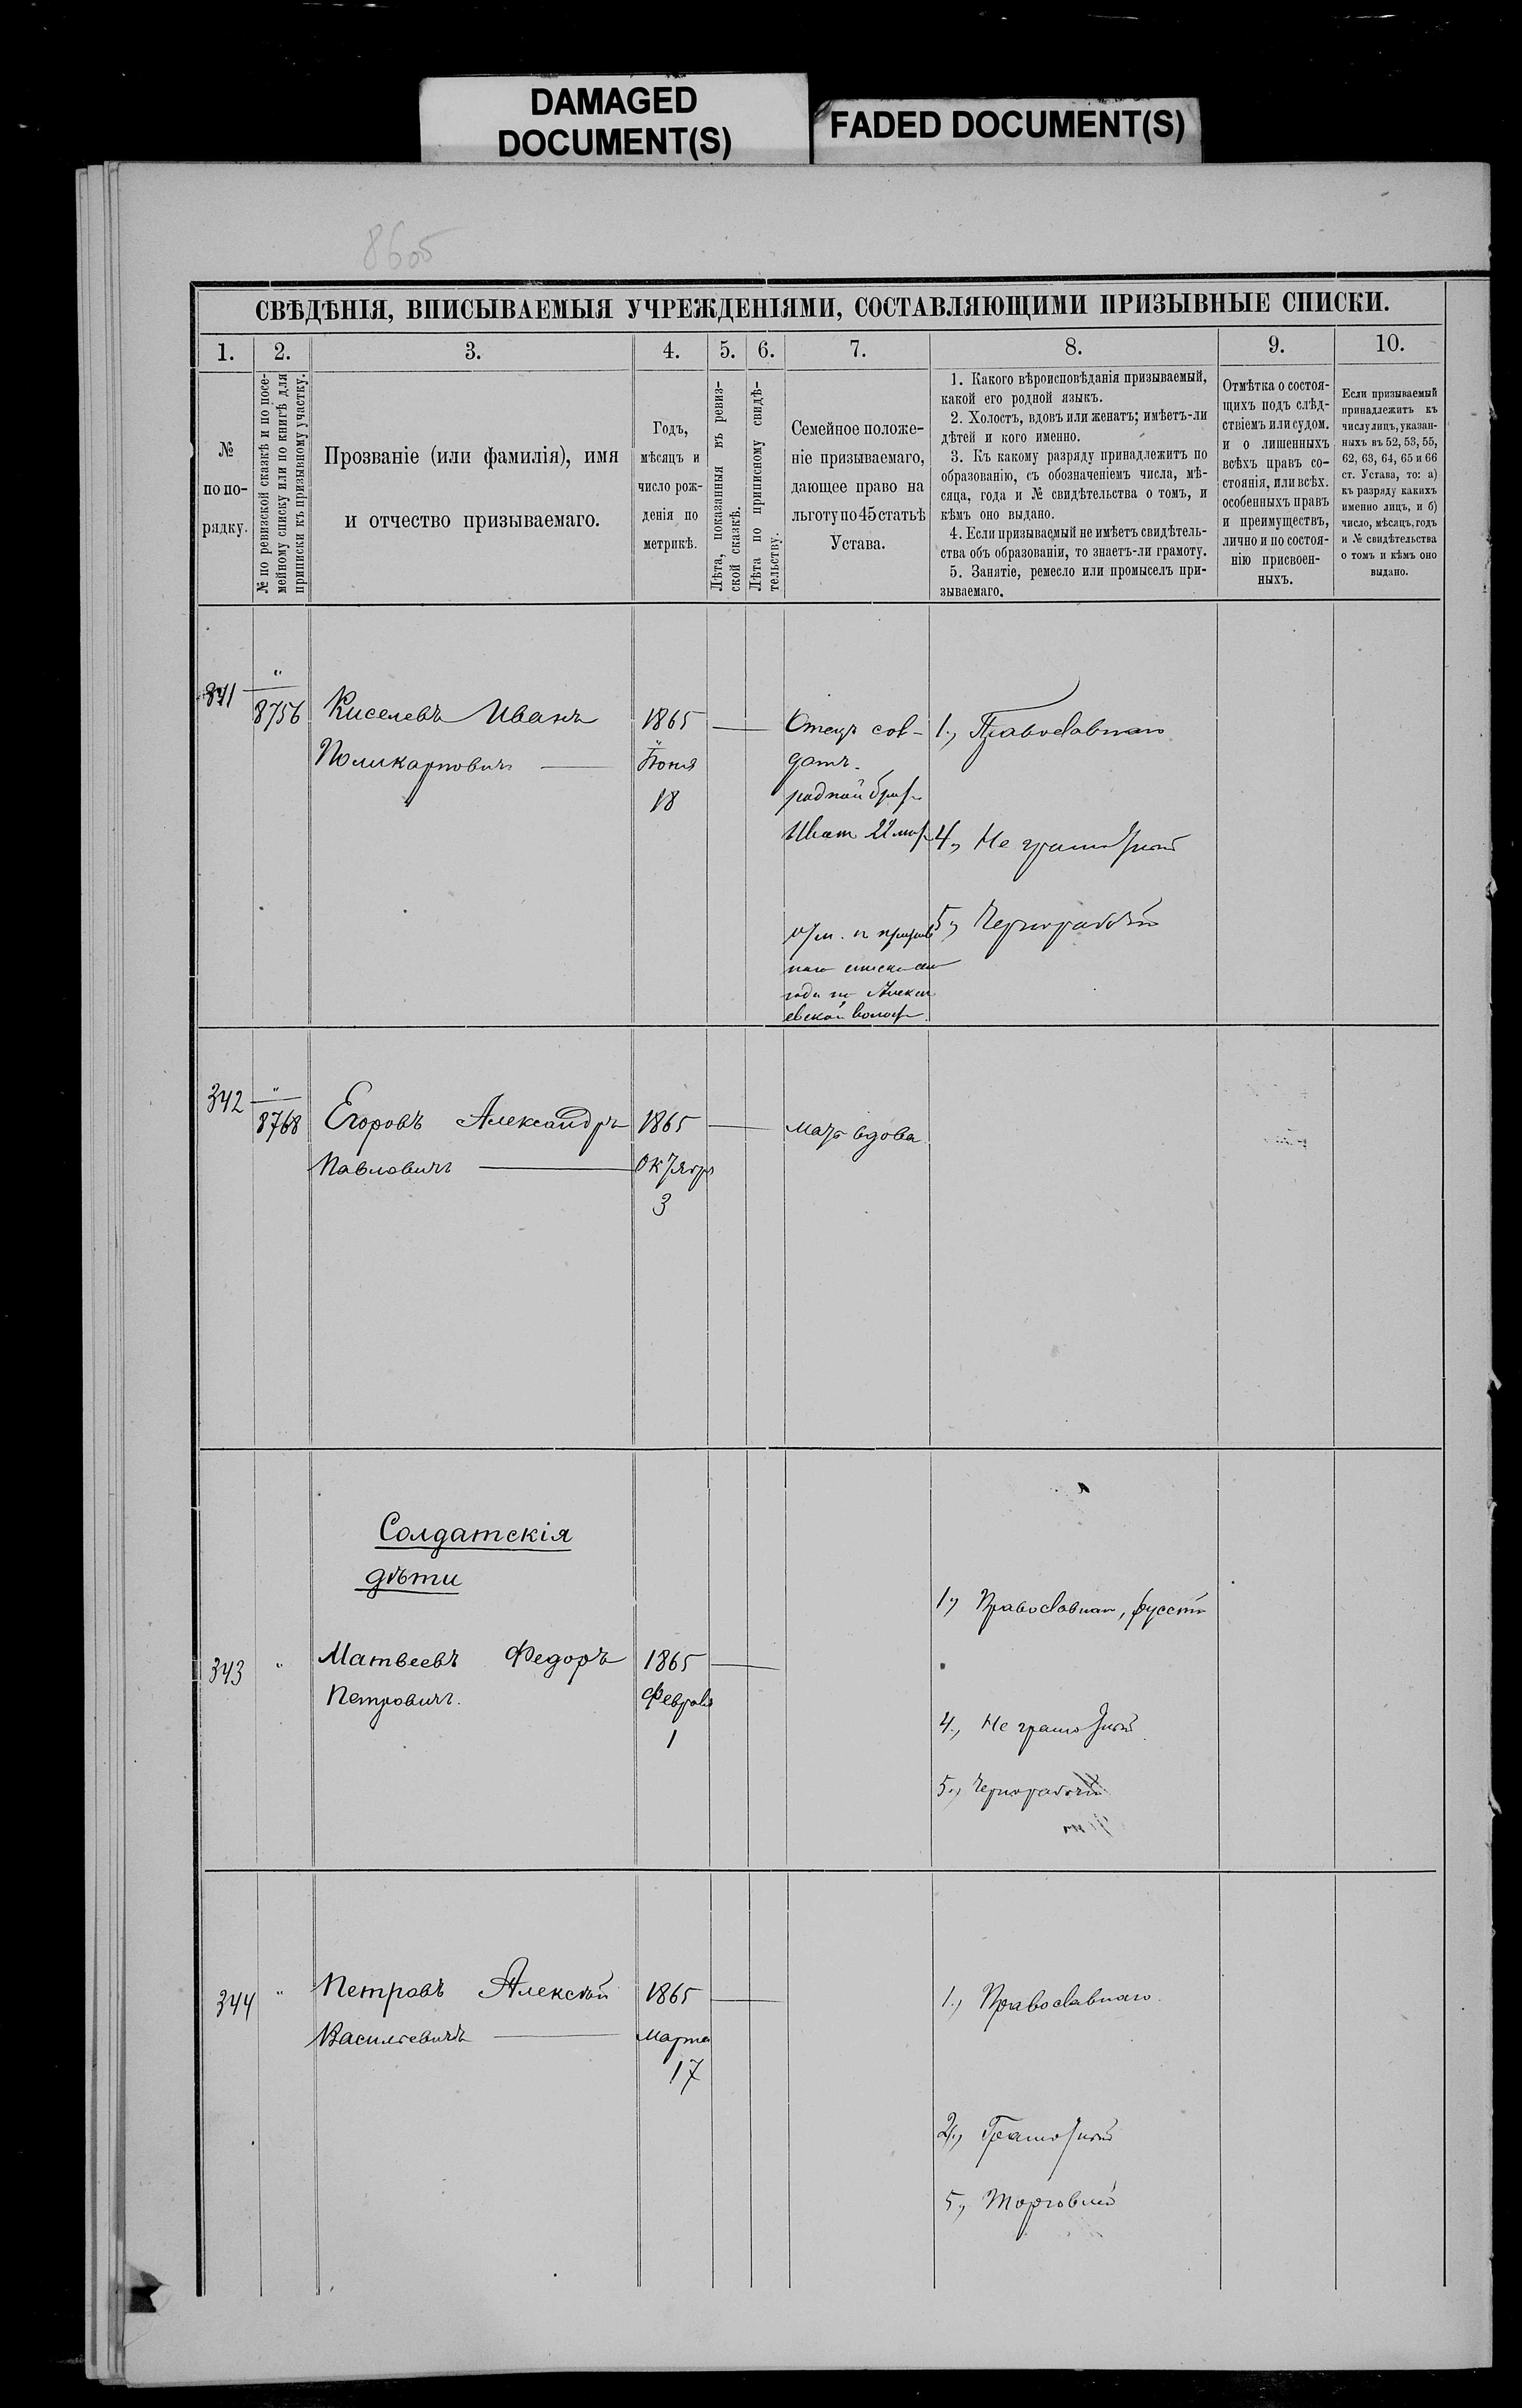 DAMAGED
DOCUMENT(S)
FADED DOCUMENT(S)
8605
СВѢДѢНІЯ, ВПИСЫВАЕМЫЯ УЧРЕЖДЕНІЯМИ, СОСТАВЛЯЮЩИМИ ПРИЗЫВНЫЕ СПИСКИ.
1. 2. 3. 4. 5. 6. 7. 8. 9. 10.
№
по по-
рядку.
№ по ревизской сказкѣ и по посе-
мейному списку или по книгѣ для
приписки къ призывному участку.
Прозваніе (или фамилія), имя
и отчество призываемаго.
Годъ,
мѣсяцъ и
число рож-
денія по
метрикѣ.
Лѣта, показанныя въ ревиз-
ской сказкѣ.
Лѣта по приписному свидѣ-
тельству.
Семейное положе-
ніе призываемаго,
дающее право на
льготу по 45 статьѣ
Устава.
1. Какого вѣроисповѣданія призываемый,
какой его родной языкъ.
2. Холостъ, вдовъ или женатъ; имѣетъ-ли
дѣтей и кого именно.
3. Къ какому разряду принадлежитъ по
образованію, съ обозначеніемъ числа, мѣ-
сяца, года и № свидѣтельства о томъ, и
кѣмъ оно выдано.
4. Если призываемый не имѣетъ свидѣтель-
ства объ образованіи, то знаетъ-ли грамоту.
5. Занятіе, ремесло или промыселъ при-
зываемаго.
Отмѣтка о состоя-
щихъ подъ слѣд-
ствіемъ или судом.
и о лишенныхъ
всѣхъ правъ со-
стоянія, или всѣх.
особенныхъ правъ
и преимуществъ,
лично и по состоя-
нію присвоен-
ныхъ.
Если призываемый
принадлежитъ къ
числу лицъ, указан-
ныхъ въ 52, 53, 55,
62, 63, 64, 65 и 66
ст. Устава, то: а)
къ разряду какихъ
именно лицъ, и б)
число, мѣсяцъ, годъ
и № свидѣтельства
о томъ и кѣмъ оно
выдано.
341
"
8756
Киселевъ Иванъ
Поликарповичъ
1865
Іюня
18
Отецъ сол-
датъ.
родной брат
Иван 22 лет
1., Православнаго
4., Не грамотный
5., Чернорабочій
342
"
8768
Егоровъ Александръ
Павловичъ
1865
Октябр
3
мать вдова
Солдатскія
дѣти
343 "
Матвеевъ Федоръ
Петровичъ.
1865
Февраля
1
1., Православнаго, русскій
4., Не грамотный.
5., Чернорабочій
344 "
Петровъ Алексѣй
Васильевичъ
1865
Марта
17
1., Православнаго.
2., Грамотный
5., Торговый